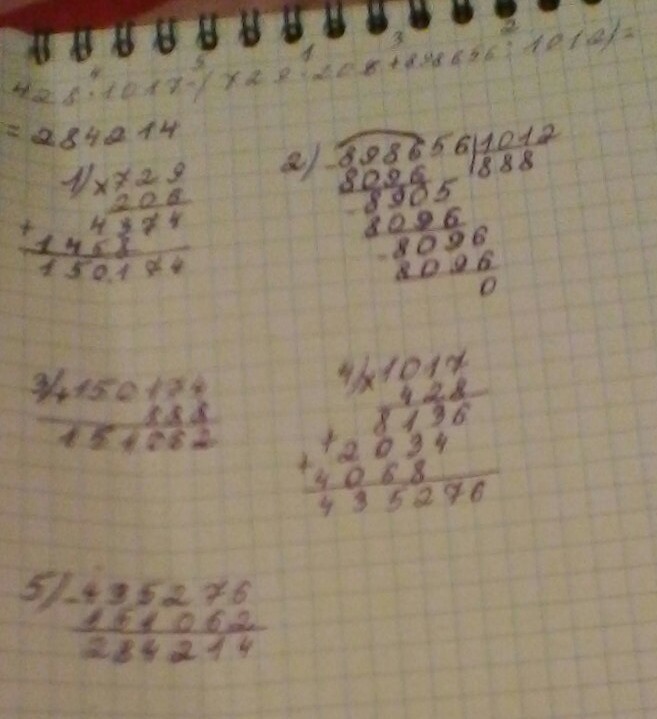 428·1017-(729·206+898656:1012)=
4 5 1 3 2
=284214
1) ×729
206
+ 4374
1458
150174
2) -898656 | 1012
8096 | 888
-8905
8096
-8096
8096
0
3) +150174
888
151062
4) ×1017
428
8136
+ 2034
+ 4068
435276
5) -435276
151062
284214